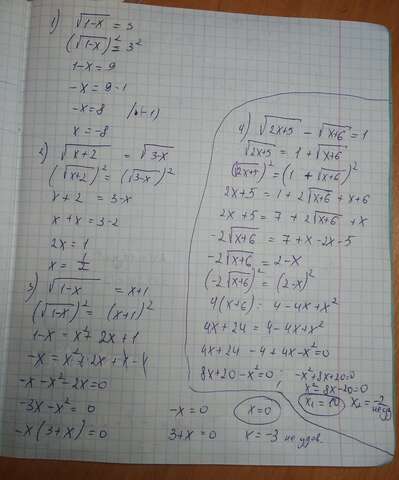 1) √1-x = 3
(√1-x)² = 3²
1-x = 9
-x = 9-1
-x = 8 /·(-1)
x = -8
2) √x+2 = √3-x
(√x+2)² = (√3-x)²
x+2 = 3-x
x+x = 3-2
2x = 1
x = 1/2
3) √1-x = x+1
(√1-x)² = (x+1)²
1-x = x²+2x+1
-x = x²+2x+1-1
-x-x²-2x=0
-3x-x² = 0
-x(3+x) = 0
-x = 0 x=0
3+x = 0 x = -3 не удов.
4) √2x+5 - √x+6 = 1
√2x+5 = 1+√x+6
(√2x+5)² = (1+√x+6)²
2x+5 = 1+2√x+6 + x+6
2x+5 = 7+2√x+6 + x
-2√x+6 = 7+x-2x-5
-2√x+6 = 2-x
(-2√x+6)² = (2-x)²
4(x+6) = 4-4x+x²
4x+24 = 4-4x+x²
4x+24-4+4x-x²=0
8x+20-x²=0; -x²+8x+20=0
x²-8x-20=0
x₁=10 x₂=-2
не уд